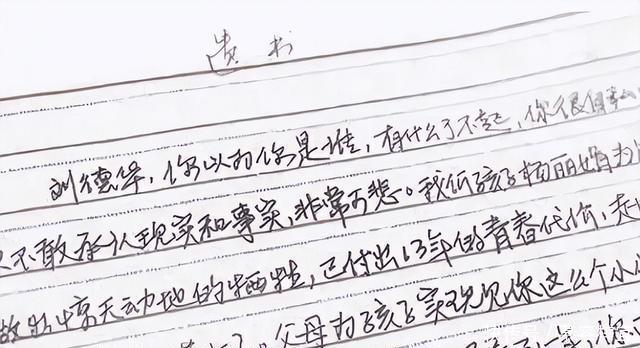 遗书
刘德华,你以为你是谁,有什么了不起,你很自
不敢承认现实和事实,非常可悲。我低孩子杨丽娟为
做出惊天动地的牺牲,已付出13年的青春代价,走
父母为孩子实现见你这么个小
一年,你